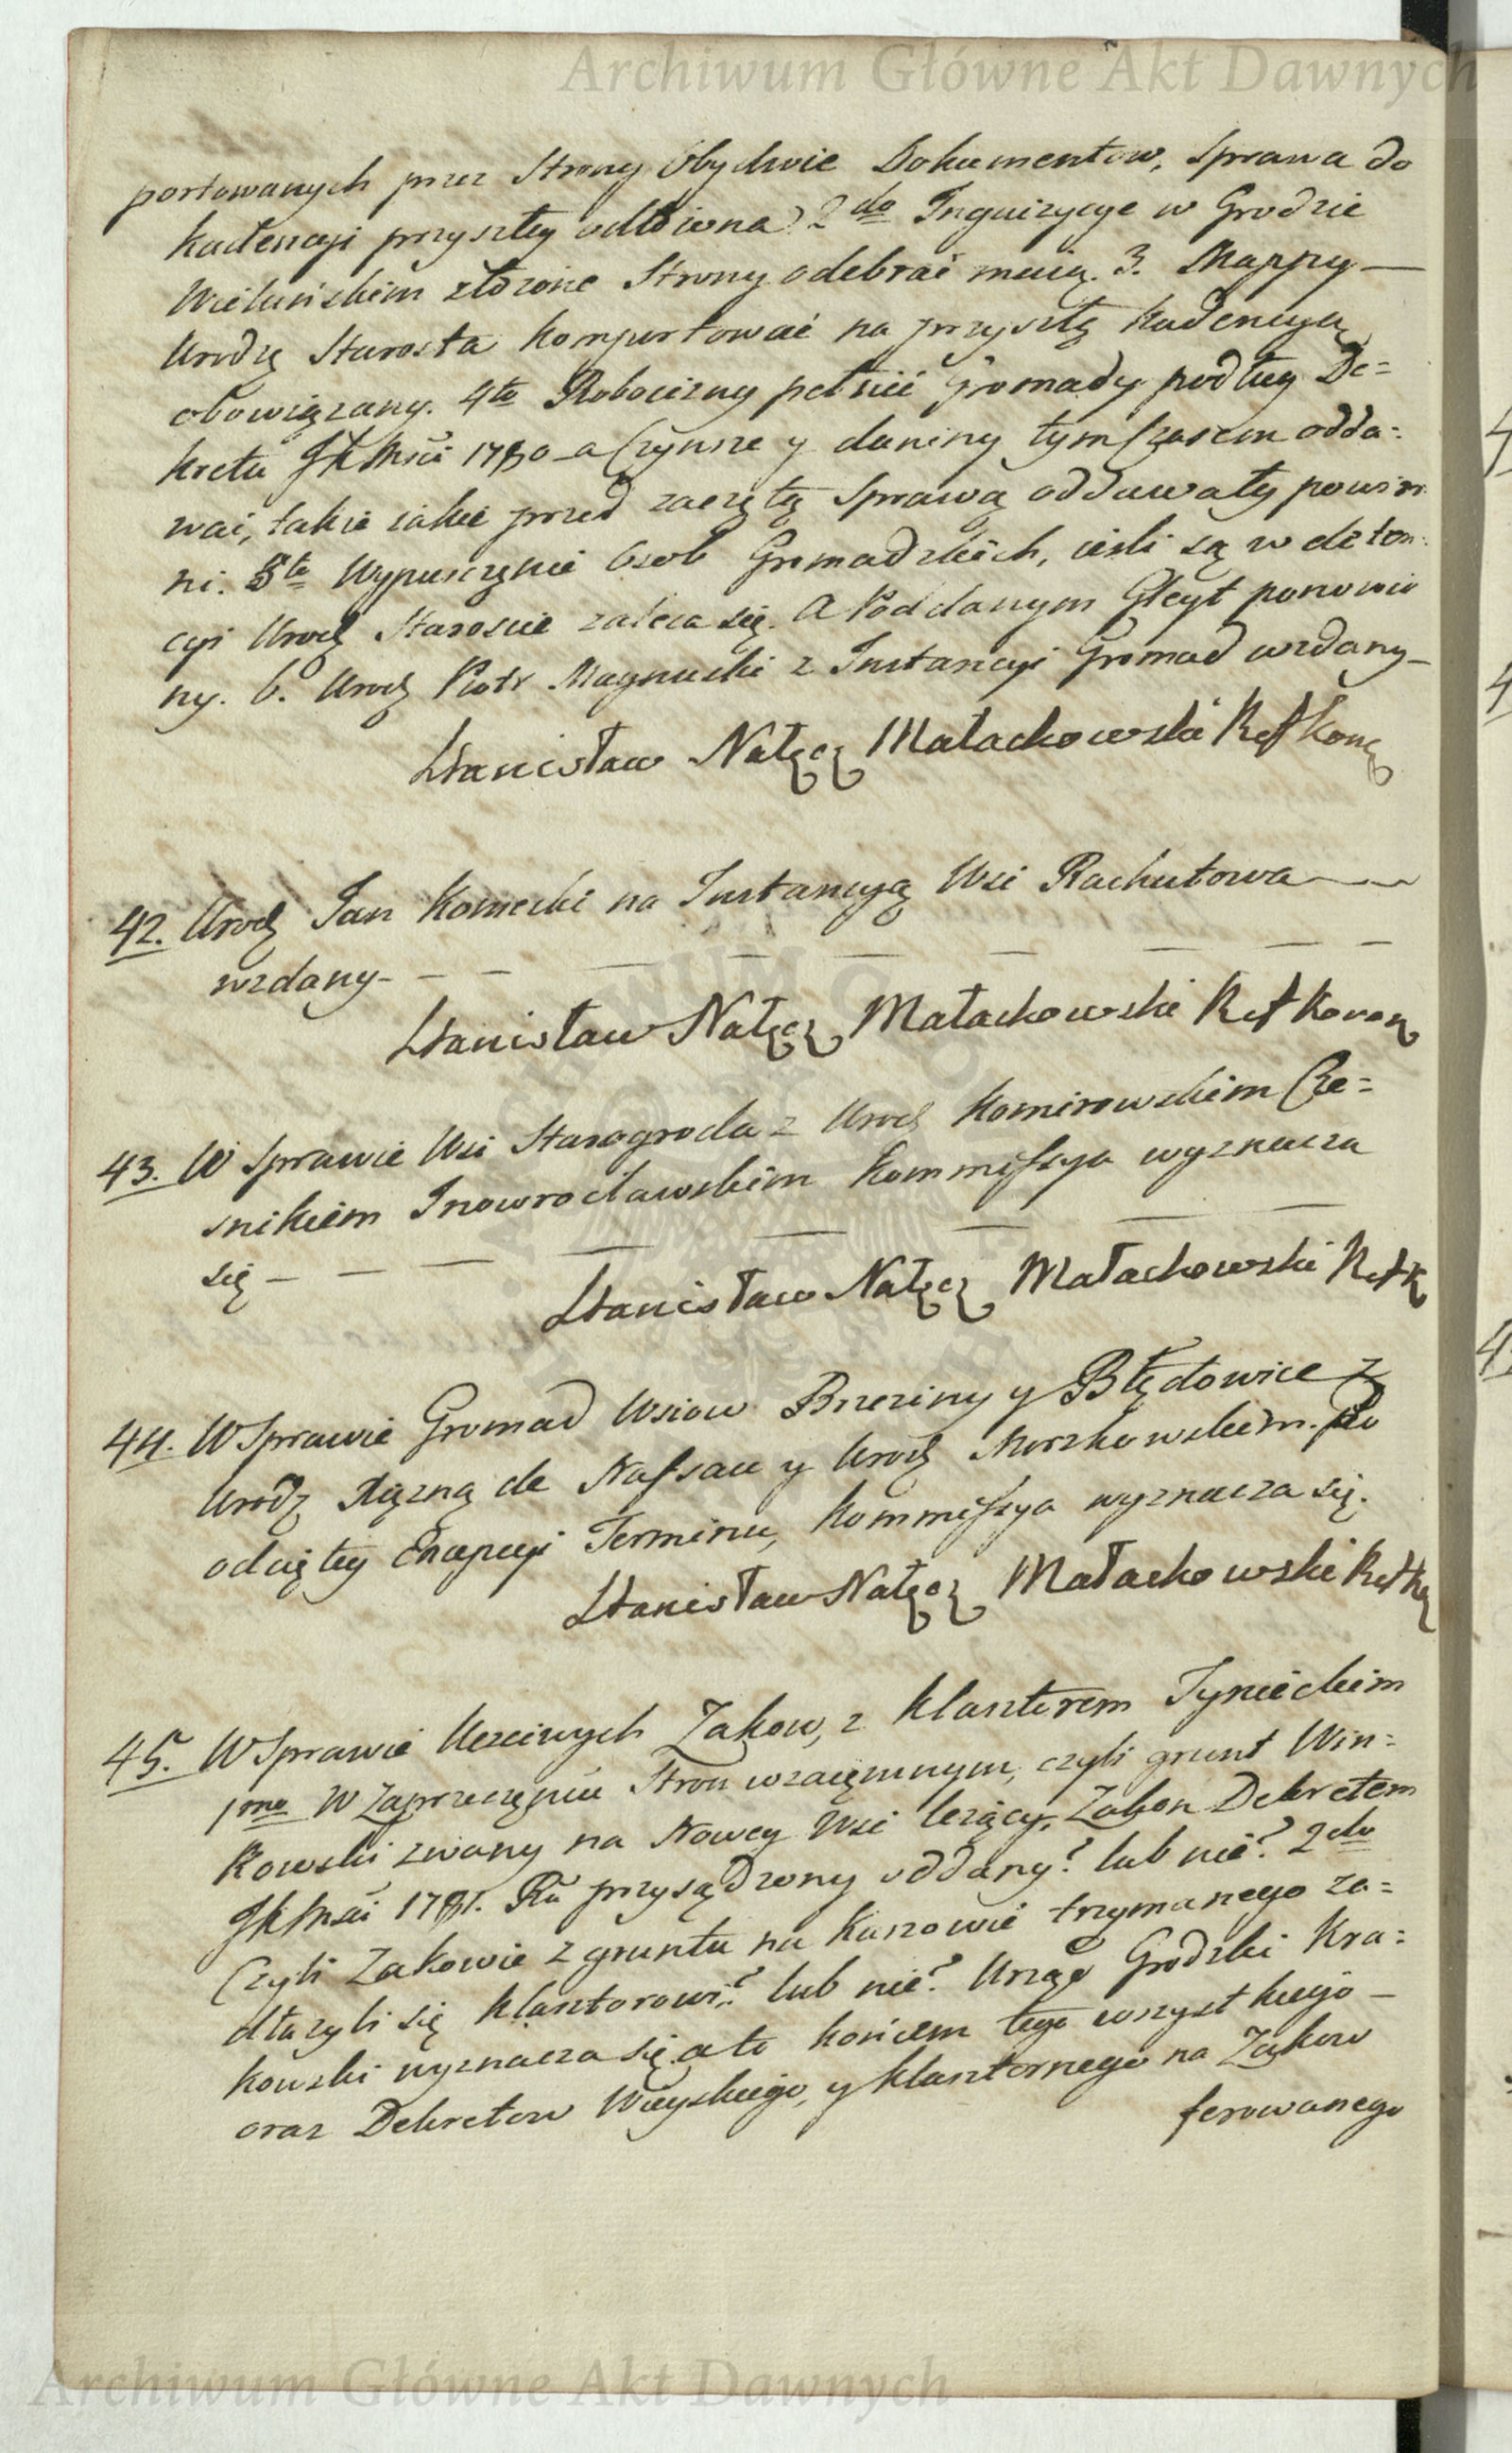 Archiwum Główne Akt Dawnych
portowanych przez Strony Obydwie Dokumentow, sprawa do
kadencyi przyszłey odłożona 2do Inquizycye w Grodzie
Wieluńskim złożone Strony odebrać maią. 3. Mappy —
Urodz Starosta komportować na przyszłą kadencyą
obowiązany. 4to Robocizny pełnić Gromady podług De=
kretu JKMści 1780 a Czynsze y daniny tymczasem odda=
wać, takie iakie przed zaczętą sprawą oddawały powin
ni. 5to Wypuszczenie Osob Gromadzkich, ieśli są w deten=
cyi Urodz Staroscie zaleca się. A Poddanym Gleyt ponowio
ny. 6. Urodz Piotr Magnuski z Instancyi Gromad wzdany —
Stanisław Nałęcz Małachowski Ref Koro
42. Urodz Jan Konecki na Instancyą Wsi Rachutowa —
wzdany —
Stanisław Nałęcz Małachowski Ref Koron
43. W Sprawie Wsi Starogroda z Urodz Komirowskim Cze=
snikiem Inowrocławskim Kommissya wyznacza
się —
Stanisław Nałęcz Małachowski Ref K
44. W Sprawie Gromad Wsiow Brzeziny y Błędowice z
Urodz Xiężną de Nassau y Urodz Morzkowskim. Po
odciętey Terminu, Kommissya wyznacza się.
Stanisław Nałęcz Małachowski Ref Ko
45. W Sprawie Uczciwych Zakow, z Klasztorem Tynieckim
1mo W Zaprzeczeniu Stron wzaiemnym, czyli grunt Win=
kowski zwany na Nowey Wsi leżący, Zakon Dekretem
JKMści 1781. Ru przysądzony oddany? lub nie? 2do
Czyli Zakowie z gruntu na Kaszowie trzymanego za=
dłużyli się Klasztorowi? lub nie? Urząd Grodzki Kra=
kowski wyznacza się a to końcem tego wszystkiego —
oraz Dekretow Woyskiego, y klasztornego na Zakow
ferowanego
Archiwum Główne Akt Dawnych